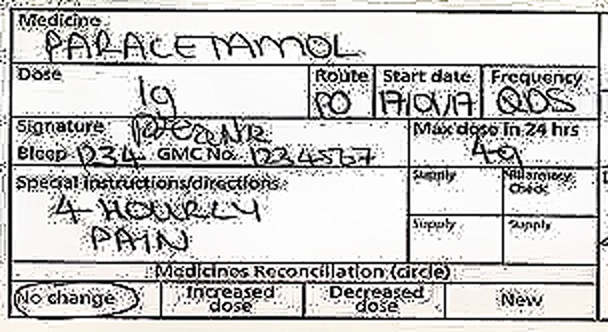 Medicine
PARACETAMOL
Dose
1g
Route
PO
Start date
17/01/17
Frequency
QDS
Signature
Bleep 1234 GMC No. 1234567
Max dose in 24 hrs
4g
Special instructions/directions
4-HOURLY
PAIN
Supply
Pharmacy
Check
Supply
Supply
Medicines Reconciliation (circle)
No change
Increased
dose
Decreased
dose
New